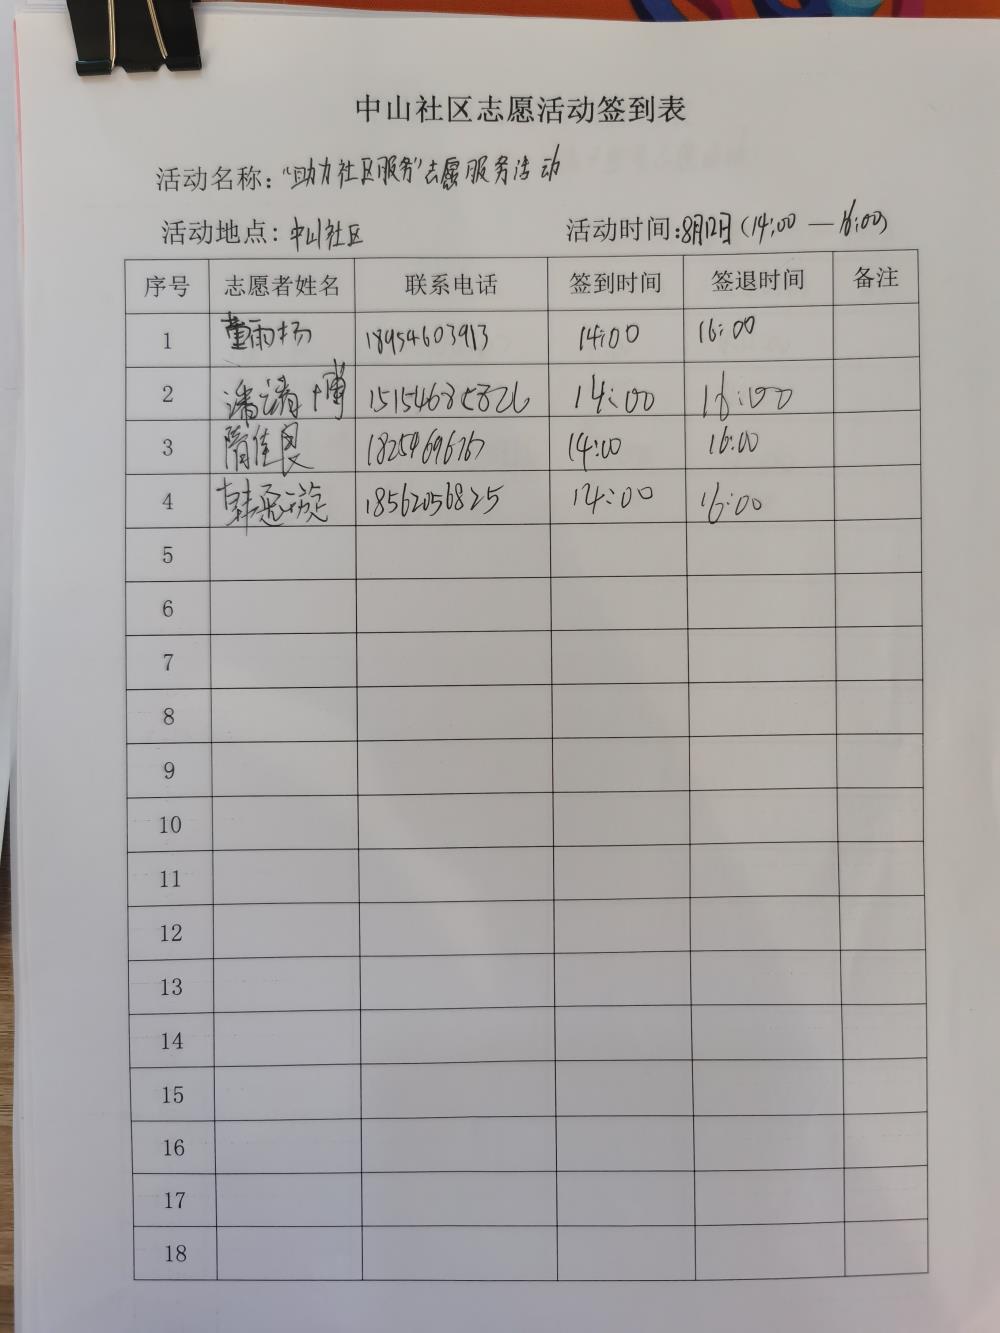 中山社区志愿活动签到表
活动名称：“助力社区服务”志愿服务活动
活动地点：中山社区 活动时间：8月12日（14:00 — 16:00）
序号 志愿者姓名 联系电话 签到时间 签退时间 备注
1 董雨杨 18954603913 14:00 16:00
2 潘清博 14:00 16:00
3 隋佳良 14:00 16:00
4 韩丞璇 18562056825 14:00 16:00
5
6
7
8
9
10
11
12
13
14
15
16
17
18